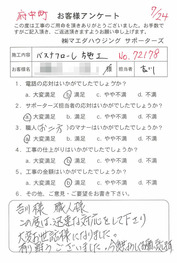 府中町 お客様アンケート 7/24
この度は工事のご用命を頂きありがとうございました。お手数で
すがご記入頂き、ご返送頂きますようお願い申し上げます。
㈱マエダハウジング サポーターズ
施工内容 バスサフロー し 工 No. 72178
様 担当者 吉川
1. 電話の応対はいかがでしたでしょうか?
a. 大変満足 b. 満足 c. やや不満 d. 不満
2. サポーターズ担当者の応対はいかがでしたでしょうか?
a. 大変満足 b. 満足 c. やや不満 d. 不満
3. 職人 の対応はいかがでしたでしょうか?
a. 大変満足 b. 満足 c. やや不満 d. 不満
4. 工事の仕上がりはいかがでしたでしょうか?
a. 大変満足 b. 満足 c. やや不満 d. 不満
5. 工事の金額はいかがでしたでしょうか?
a. 大変満足 b. 満足 c. やや不満 d. 不満
6. その他、ご意見・ご要望をお聞かせ下さい。
吉川様 職人様
この度は、迅速な対応をして下さり
大変お世話様になりました。
有り難うございました。今後共宜しくお願い致します